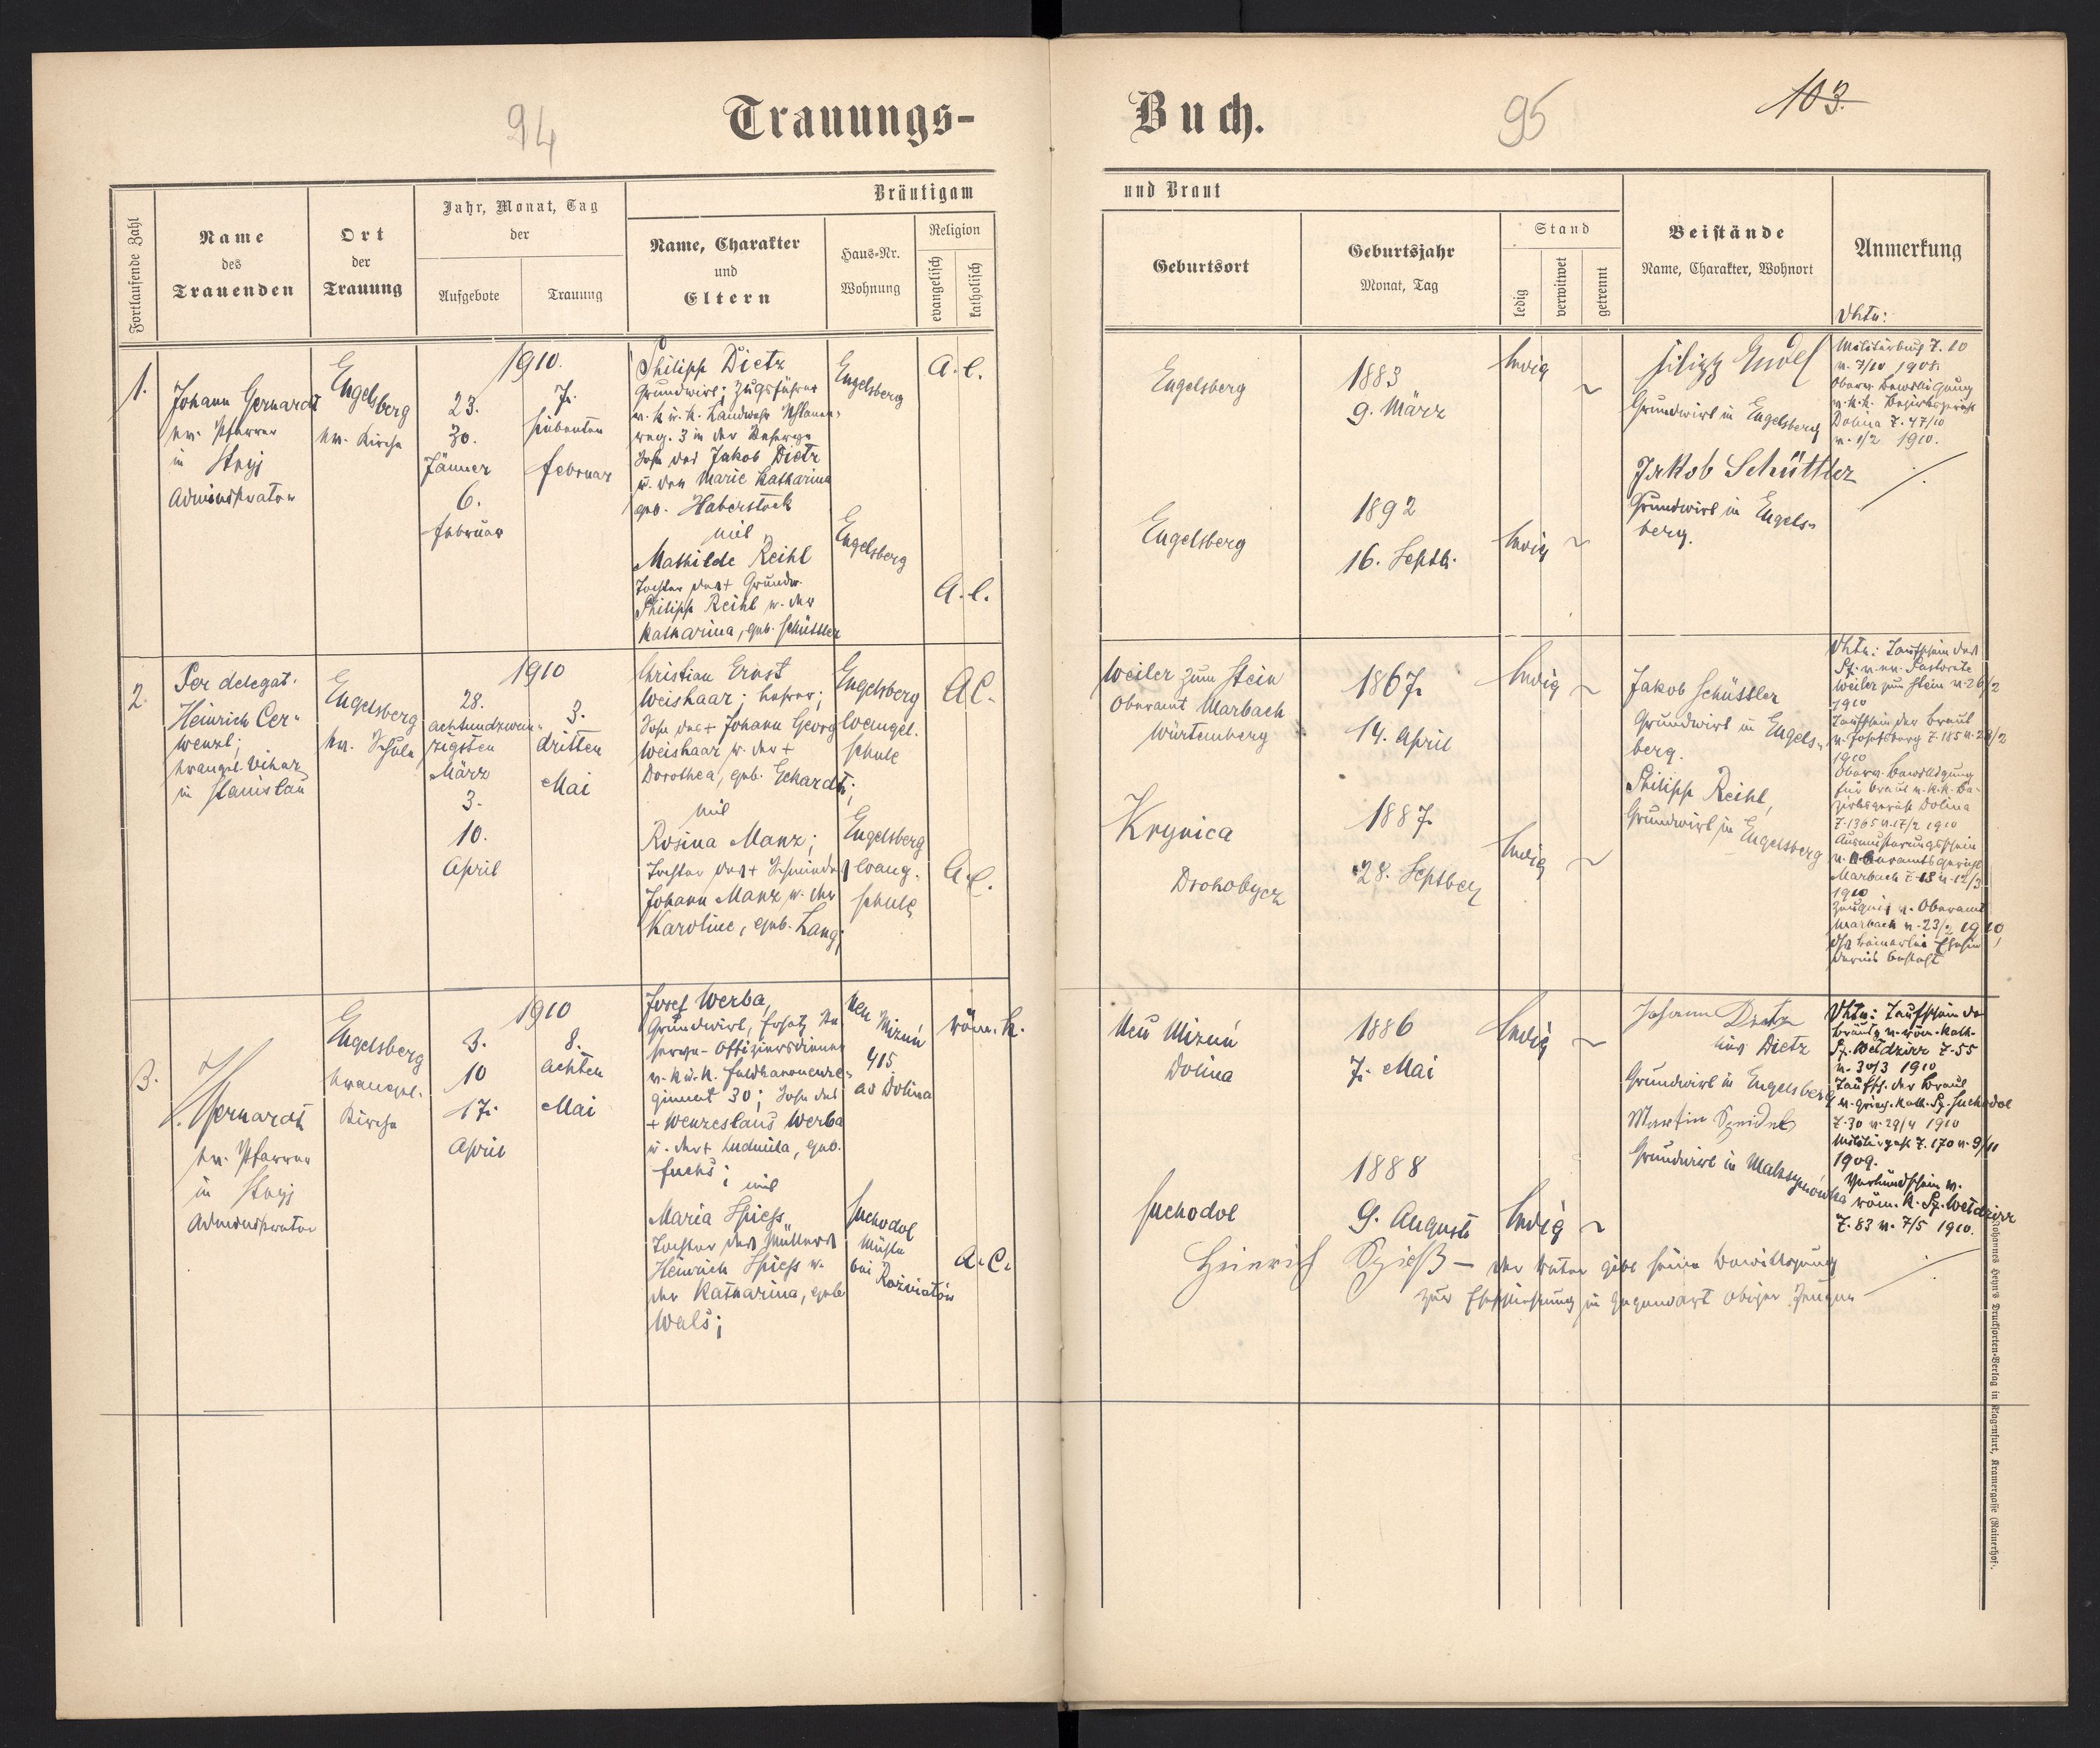 94
Trauungs-
Buch.
95
103.
Fortlaufende Zahl
Name
des
Trauenden
Ort
der
Trauung
Jahr, Monat, Tag
der
Aufgebote
Trauung
Bräutigam
Name, Charakter
und
Eltern
Haus-Nr.
Wohnung
Religion
evangelisch
katholisch
und Braut
Geburtsort
Geburtsjahr
Monat, Tag
Stand
ledig
verwitwet
getrennt
Beistände
Name, Charakter, Wohnort
Anmerkung
1.
Johann Gernardt
ev. Pfarrer
in Stryj
Administrator
Engelsberg
ev. Kirche
1910.
23.
30.
Jänner
6.
Februar
7.
siebenten
Februar
Philipp Dietz
Grundwirt; Zugsführer
reg. 3 in der Reserve
Sohn des Jakob Dietz
u. der Marie Katharina
geb. Haberstock
mit
Mathilde Reihl
Tochter des + Grundw.
Philipp Reihl u. der
Katharina, geb. Schüttler
Engelsberg
Engelsberg
A. C.
A. C.
Engelsberg
1883
9. März
ledig
Engelsberg
1892
16. Septb.
ledig
Grundwirt in Engelsberg
Jakob Schüttler
Grundwirt in Engels-
berg.
v. 7/10 1908.
Oberv. Bewilligung
v. k. k. Bezirksgericht
Dolina Z. 47/10
v. 1/2 1910.
2.
Per delegat.
Heinrich Cer-
wenzl;
evangel. Vikar
in Stanislau
Engelsberg
ev. Schule
1910
28.
achtundzwan-
zigsten
März
3.
10.
April
3.
dritten
Mai
Christian Ernst
Weishaar; Lehrer;
Sohn des + Johann Georg
Weishaar u. der +
Dorothea, geb. Gehardt;
mit
Rosina Manz;
Tochter des + Schmiedes
Johann Manz u. der
Karoline, geb. Lang;
Engelsberg
evangel.
Schule
Engelsberg
evang.
Schule
A.C.
A.C.
Weiler zum Stein
Oberamt Marbach
Würtemberg
1867
14. April
ledig
Krynica
Drohobycz
1887
28. Septber
ledig
Jakob Schüssler
Grundwirt in Engels-
berg.
Philipp Reihl,
Grundwirt in Engelsberg
Taufschein des
Pf. v. ev. Pastorate
Weiler zum Stein v. 26/2
1910
Taufschein der Braut
v. Josefsberg Z. 185 v. 23/2
1910
Oberv. Bewilligung
für Braut v. k. k. Be-
zirksgericht Dolina
Z. 1365 v. 17/2 1910
Ausmusterungsschein
v. Oberamtsgericht
Marbach Z. 18 v. 12/3
1910
Zeugnis v. Oberamt
Marbach v. 23/2 1910,
dass keinerlei Ehehin-
dernis besteht
3.
J. Gernardt
ev. Pfarrer
in Stryj
Administrator
Engelsberg
evangel.
Kirche
1910
3.
10
17.
April
8.
achten
Mai
Josef Werba,
Grundwirt, Ersatz Re-
serve-Offiziersdiener
v. k. u. k. Feldkanonenre-
giment 30; Sohn des
+ Wenzeslaus Werba
u. der + Ludmila, geb.
Fuchs; mit
Maria Spiess
Tochter des Müllers
Heinrich Spiess u.
der Katharina, geb.
Wals;
Neu Mizuń
415
ad Dolina
Suchodol
Mühle
bei Rożniatów
röm. k.
A. C.
Neu Mizuń
Dolina
1886
7. Mai
ledig
Suchodol
1888
9. August
ledig
Johann Dietz
Dietz
Grundwirt in Engelsberg
Martin Speidel
Grundwirt in Maksymówka
Taufschein des
Bräutg. v. röm. kath.
Pf. Wełdzirz Z. 55
v. 30/3 1910
Taufsch. der Braut
v. griech. kath. Pf. Suchodol
Z. 30 v. 29/4 1910
1909.
Verkündschein v.
röm. k. Pf. Wełdzirz
Z. 83 v. 7/5 1910.
Heinrich Spieß – der Vater gibt seine Bewilligung
zur Eheschliessung in Gegenwart obiger Zeugen
Johannes Heyn's Drucksorten-Verlag in Klagenfurt, Kramergasse (Rainerhof).